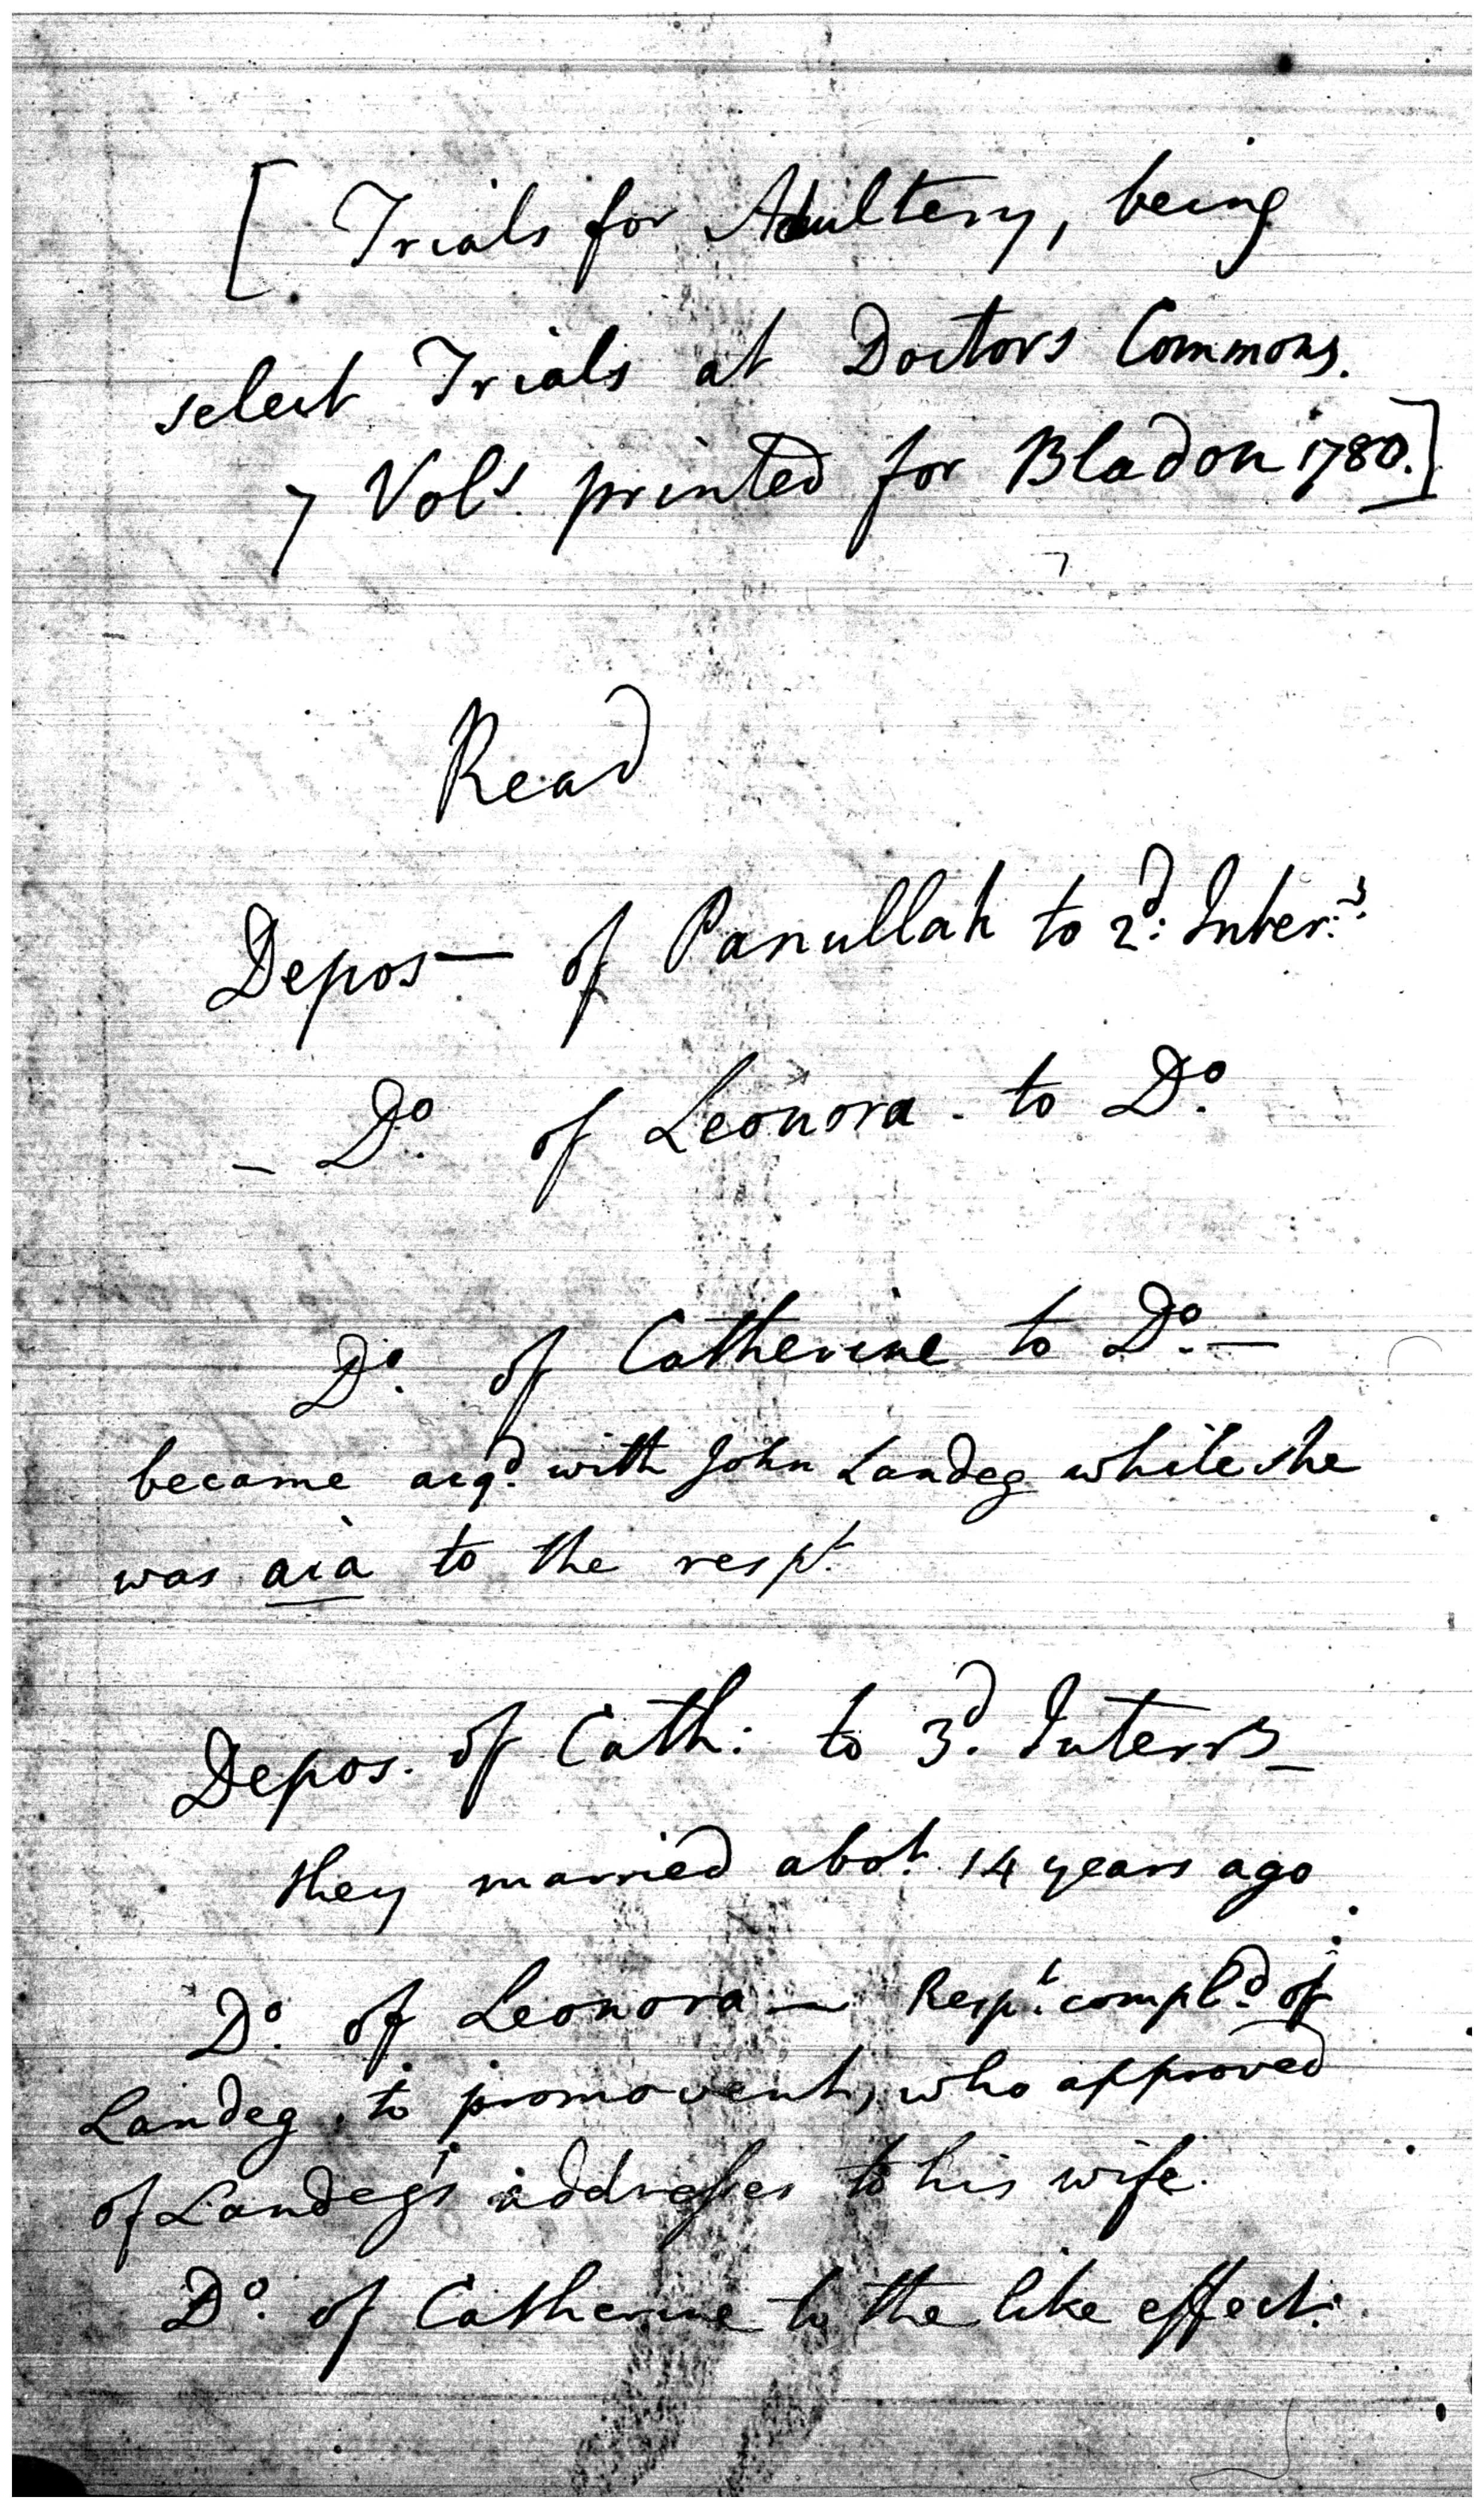 [ Trials for Adultery, being
select Trials at Doctors Commons.
7 Vols. printed for Bladon 1780.]
Read
Depos— of Panullah to 2d: Inter:s.
– Do. of Leonora - to Do.
Do. of Catherine to Do. —
became acqd. with John Landeg while she
was aia to the respt.
Depos. of Cath: to 3d. Interrs –
they married abot. 14 years ago
Do. of Leonora — Respt. compld. of
Landeg to promovent, who approved
of Landeg's addresses to his wife.
Do. of Catherine to the like effect.